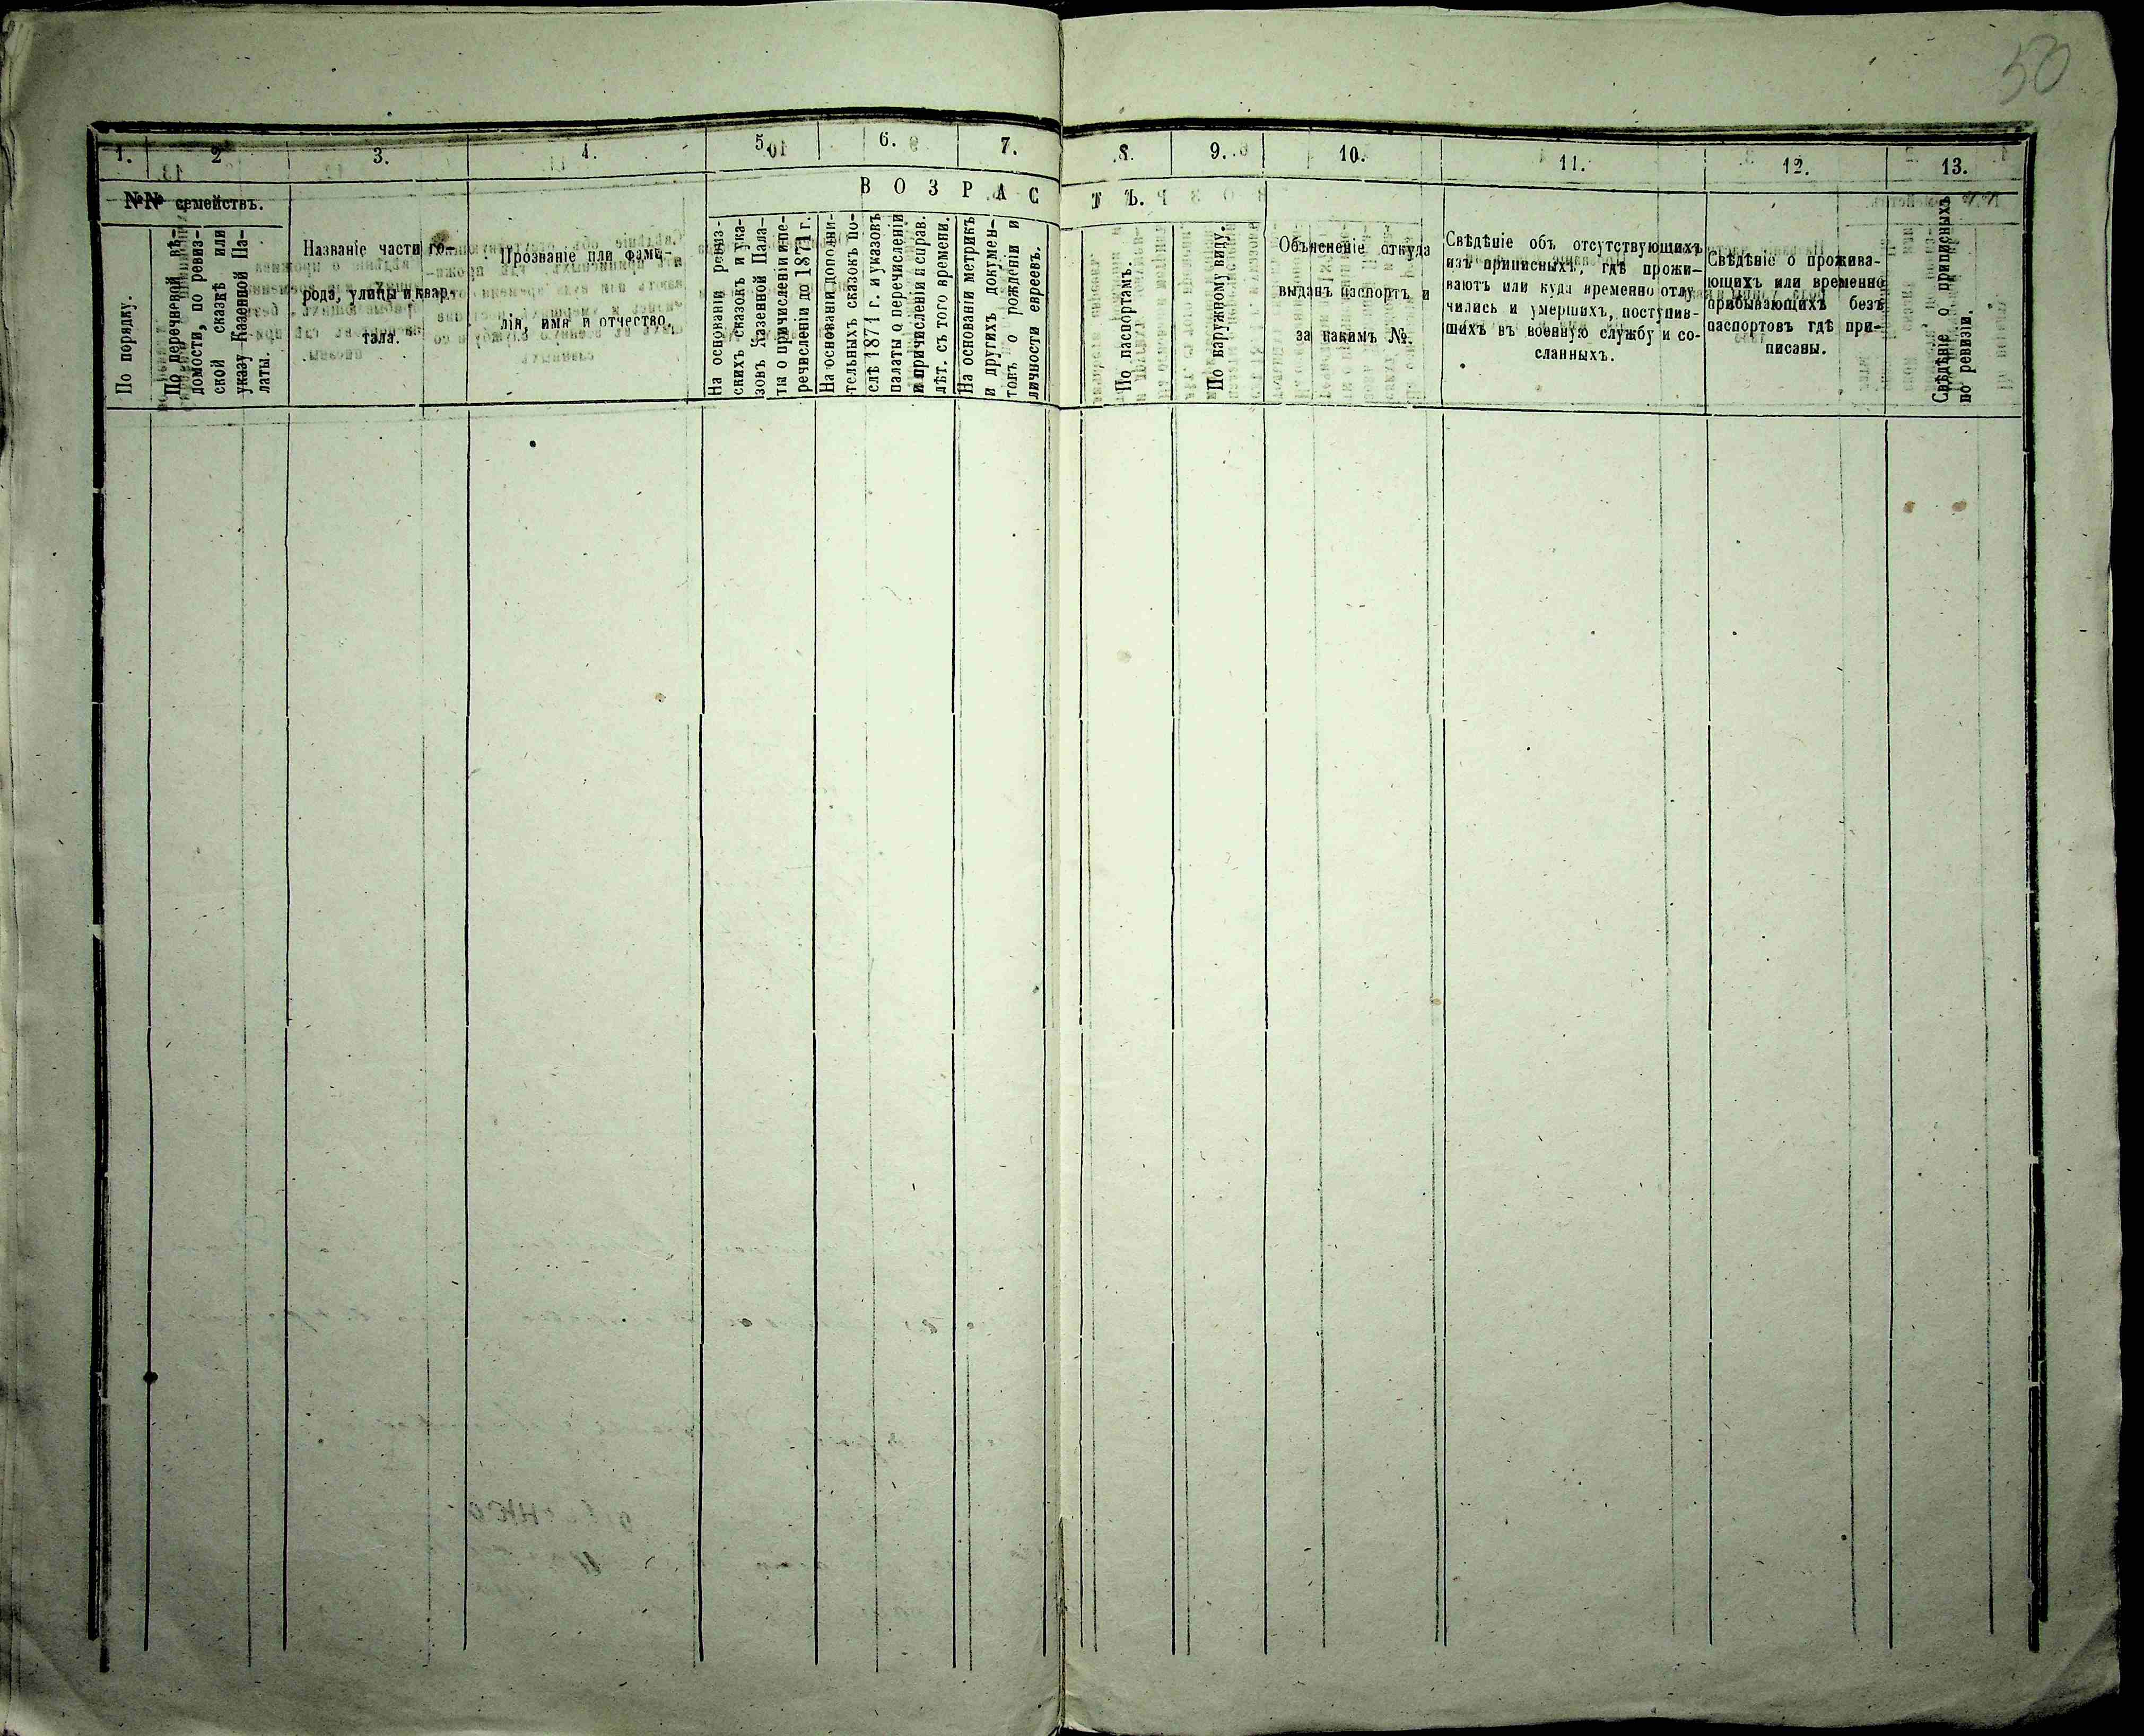 50
1.
2
3.
4.
5.
6.
7.
8.
9.
10.
11.
12.
13.
№№ семействъ.
По порядку.
По перечневой вѣ-
домости, по ревиз-
ской сказкѣ или
указу Казенной Па-
латы.
Названіе части го-
рода, улицы и квар-
тала.
Прозваніе или фами-
лія, имя и отчество.
ВОЗРАСТЪ.
На основаніи ревиз-
скихъ сказокъ и ука-
зовъ Казенной Пала-
ты о причисленіи и пе-
речисленіи до 1871 г.
На основаніи дополни-
тельныхъ сказокъ по-
слѣ 1871 г. и указовъ
палаты о перечисленіи
и причисленіи и справ.
лѣт. съ того времени.
На основаніи метрикъ
и другихъ докумен-
товъ о рожденіи и
личности евреевъ.
По паспортамъ.
По наружному виду.
Объясненіе откуда
выданъ паспортъ и
за какимъ №.
Свѣдѣніе объ отсутствующихъ
изъ приписныхъ, гдѣ прожи-
ваютъ или куда временно отлу
чились и умершихъ, поступив-
шихъ въ военную службу и со-
сланныхъ.
Свѣдѣніе о прожива-
ющихъ или временно
прибывающихъ безъ
паспортовъ гдѣ при-
писаны.
Свѣдѣніе о приписныхъ
по ревизіи.